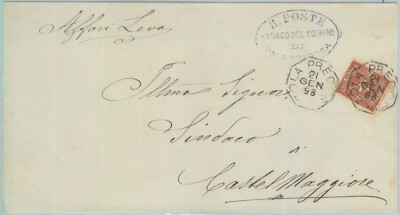 Affari Leva
R. POSTE
SINDACO DEL COMUNE
DI
21
GEN
98
PRED
21
GEN
98
Illmo Signor
Sindaco
di
Castel Maggiore